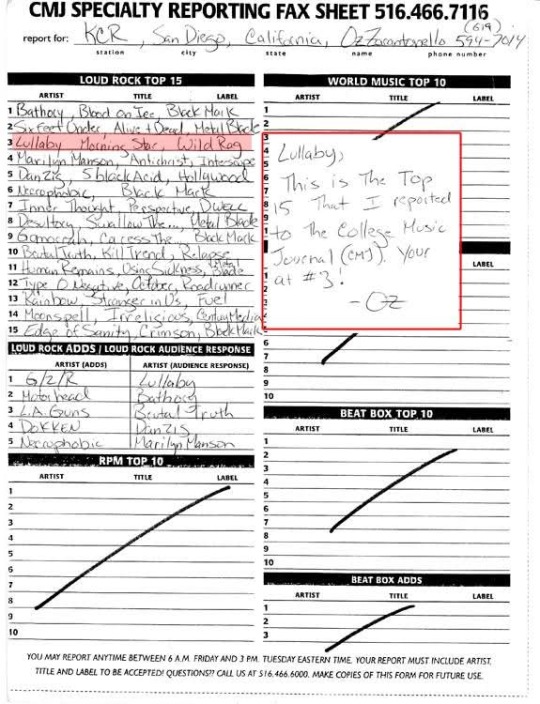 CMJ SPECIALTY REPORTING FAX SHEET 516.466.7116
report for: KCR, San Diego, California, Oz (619) 594-7014
station city state name phone number
LOUD ROCK TOP 15
ARTIST TITLE LABEL
1 Bathory, Blood on Ice, Black Mark
2 Six Feet Under, Alive + Dead, Metal Blade
3 Lullaby Morning Star, Wild Rag
4 Marilyn Manson, Antichrist, Interscope
5 Danzig, 5 black Acid, Hollywood
6 Necrophobic, Black Mark
7 Inner Thought, Perspective, Dwell
8 Desultory, Swallow The..., Metal Blade
9 Gomorrah, Caress The Black Mark
10 Brutal Truth, Kill Trend, Relapse
11 Human Remains, Using Sickness, Metal Blade
12 Type O Negative, October, Roadrunner
13 Rainbow, Stranger in Us, Fuel
14 Moonspell, Irreligious, Century Media
15 Edge of Sanity, Crimson, Black Mark
LOUD ROCK ADDS / LOUD ROCK AUDIENCE RESPONSE
ARTIST (ADDS) ARTIST (AUDIENCE RESPONSE)
1 G/Z/R Lullaby
2 Motorhead Bathory
3 L.A. Guns Brutal Truth
4 DOKKEN Danzig
5 Necrophobic Marilyn Manson
RPM TOP 10
ARTIST TITLE LABEL
1
2
3
4
5
6
7
8
9
10
WORLD MUSIC TOP 10
ARTIST TITLE LABEL
1
2
3
Lullaby,
This is The Top
15 That I reported
to The College Music
Journal (CMJ). Your
at #3!
- Oz
LABEL
6
7
8
9
10
BEAT BOX TOP 10
ARTIST TITLE LABEL
1
2
3
4
5
6
7
8
9
10
BEAT BOX ADDS
ARTIST TITLE LABEL
1
2
3
YOU MAY REPORT ANYTIME BETWEEN 6 A.M. FRIDAY AND 3 P.M. TUESDAY EASTERN TIME. YOUR REPORT MUST INCLUDE ARTIST,
TITLE AND LABEL TO BE ACCEPTED! QUESTIONS?? CALL US AT 516.466.6000. MAKE COPIES OF THIS FORM FOR FUTURE USE.